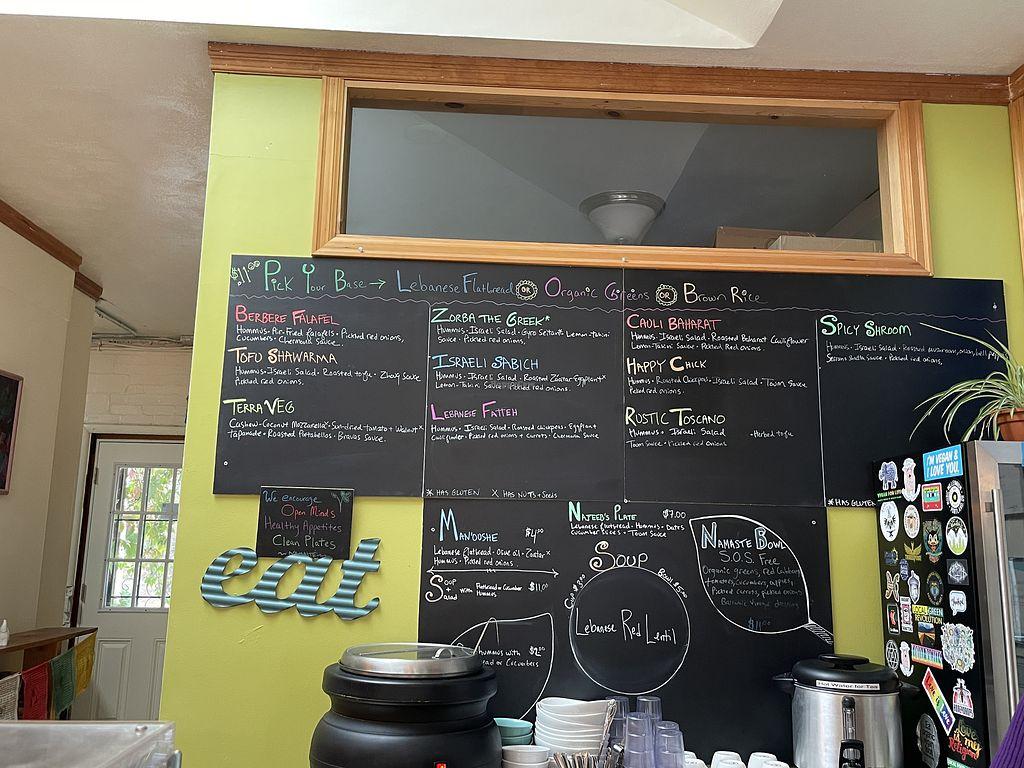 $11.00 Pick Your Base → Lebanese Flatbread OR Organic Greens OR Brown Rice
Berbere Falafel
Hummus - Air-Fried falafels - Pickled red onions,
Cucumbers - Chermoula Sauce
Tofu Shawarma
Hummus - Israeli Salad - Roasted tofu - Zhoug Sauce
Pickled red onions.
Terra Veg
Cashew-Coconut Mozzarella - Sun-dried tomato + Walnut
Tapanade - Roasted Portabellos - Bravas Sauce.
Zorba the Greek*
Hummus - Israeli Salad - Gyro Seitan* Lemon-Tahini
Sauce - Pickled red onions.
Israeli Sabich
Hummus - Israeli Salad - Roasted Zaatar Eggplant x
Lemon-Tahini Sauce - Pickled red onions.
Lebanese Fatteh
Hummus - Israeli Salad - Roasted chickpeas - Eggplant
Cauliflower - Pickled red onions + carrots - Chermoula Sauce
* Has Gluten X Has Nuts + Seeds
Cauli Baharat
Hummus - Israeli Salad - Roasted Baharat Cauliflower
Lemon-Tahini Sauce - Pickled Red Onions.
Happy Chick
Hummus - Roasted Chickpeas - Israeli Salad - Toum Sauce
Pickled red onions.
Rustic Toscano
Hummus + Israeli Salad - Herbed tofu
Toum Sauce - Pickled red onions
Spicy Shroom
Hummus - Israeli Salad - Roasted mushroom, onion, bell
Sauce - Pickled red onions,
* Has Gluten
We encourage
Open Minds
Healthy Appetites
Clean Plates
eat
Man'oushe $4.00
Lebanese flatbread - Olive oil - Zaatar x
Hummus - Pickled red onions
Soup + Salad with Flatbread or Cucumber Hummus $11.00
Hummus with $2.00
or Cucumbers
Najeeb's Plate $7.00
Lebanese flatbread - Hummus - Dates
Cucumber Slices + Toum Sauce
Soup
Cup Bowl $5.00
Lebanese Red Lentil
Namaste Bowl
S.O.S. Free
Organic greens, Red Cabbage
tomatoes, cucumbers, apples,
Pickled carrots, pickled onions
Balsamic Vinegar dressing
$11.00
Hot Water for Tea
I'M VEGAN &
I LOVE YOU.
LOCAL GREEN
REVOLUTION
Love is my Religion